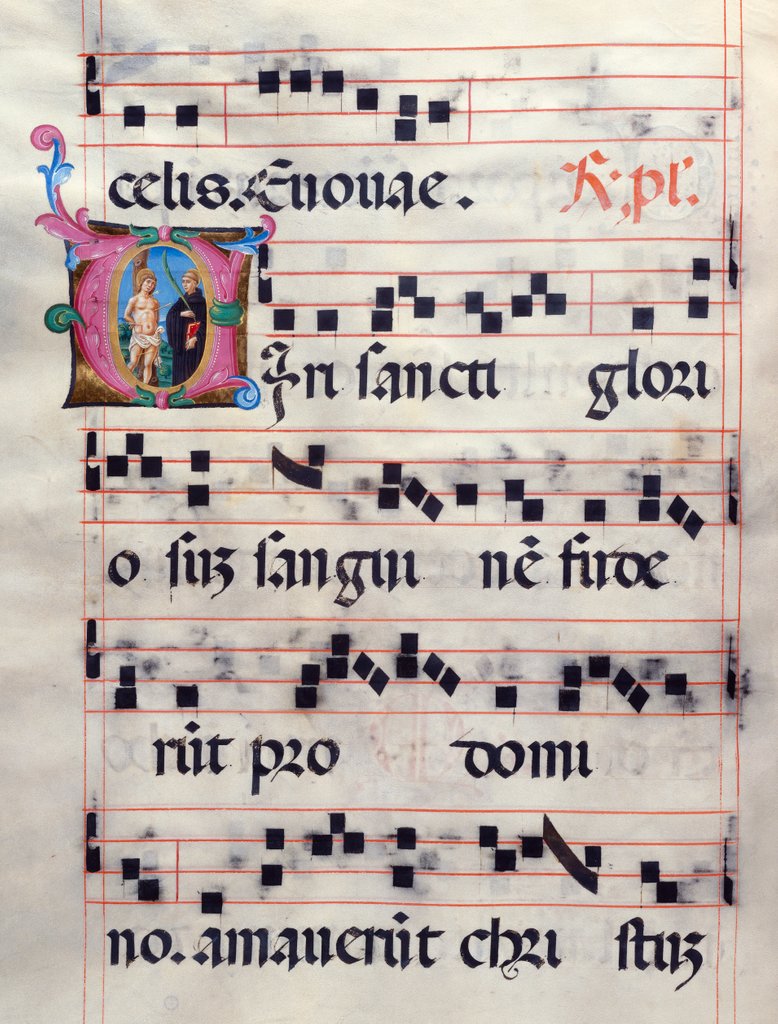 celis. Euouae. R; pl'.
Viri sancti glori
o sūz sangui nē fude
rūt pro domi
no. amauerūt chri stuz